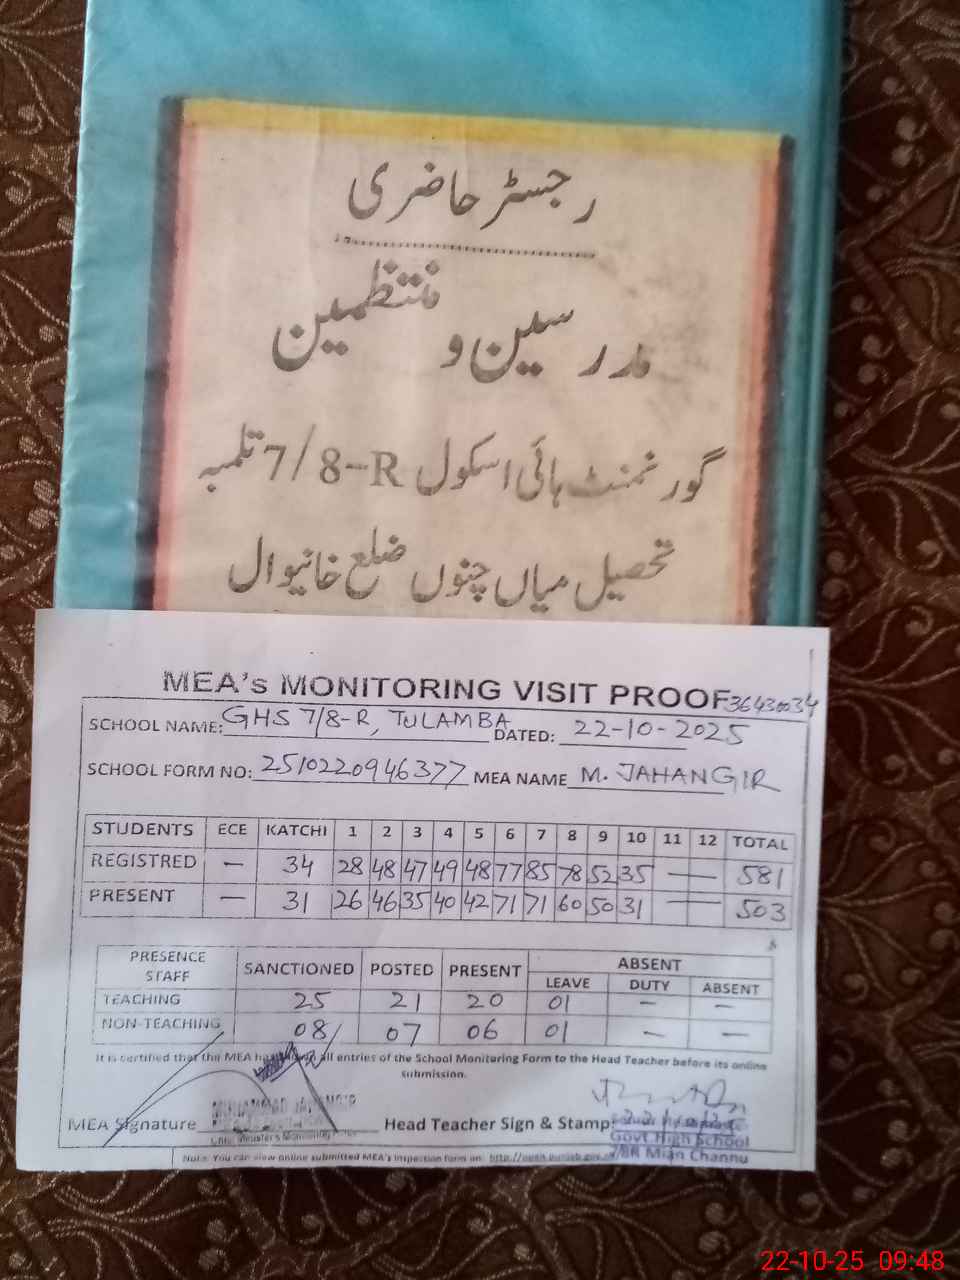 رجسٹر حاضری
مدرسین و منتظمین
گورنمنٹ ہائی اسکول 7/8-R تلمبہ
تحصیل میاں چنوں ضلع خانیوال
MEA's MONITORING VISIT PROOF 36430034
SCHOOL NAME: GHS 7/8-R, TULAMBA DATED: 22-10-2025
SCHOOL FORM NO: 2510220946377 MEA NAME M. JAHANGIR
STUDENTS ECE KATCHI 1 2 3 4 5 6 7 8 9 10 11 12 TOTAL
REGISTRED — 34 28 48 47 49 48 77 85 78 52 35 — 581
PRESENT — 31 26 46 35 40 42 71 71 60 50 31 — 503
PRESENCE STAFF SANCTIONED POSTED PRESENT ABSENT
LEAVE DUTY ABSENT
TEACHING 25 21 20 01 — —
NON-TEACHING 08 07 06 01 — —
It is certified that the MEA has all entries of the School Monitoring Form to the Head Teacher before its online
submission.
MEA Signature MUHAMMAD JAHANGIR Head Teacher Sign & Stamp:
Chief Minister's Monitoring
Govt High School
7/8R Mian Channu
Note: You can view online submitted MEA's inspection form on: http://open.punjab.gov.
22-10-25 09:48